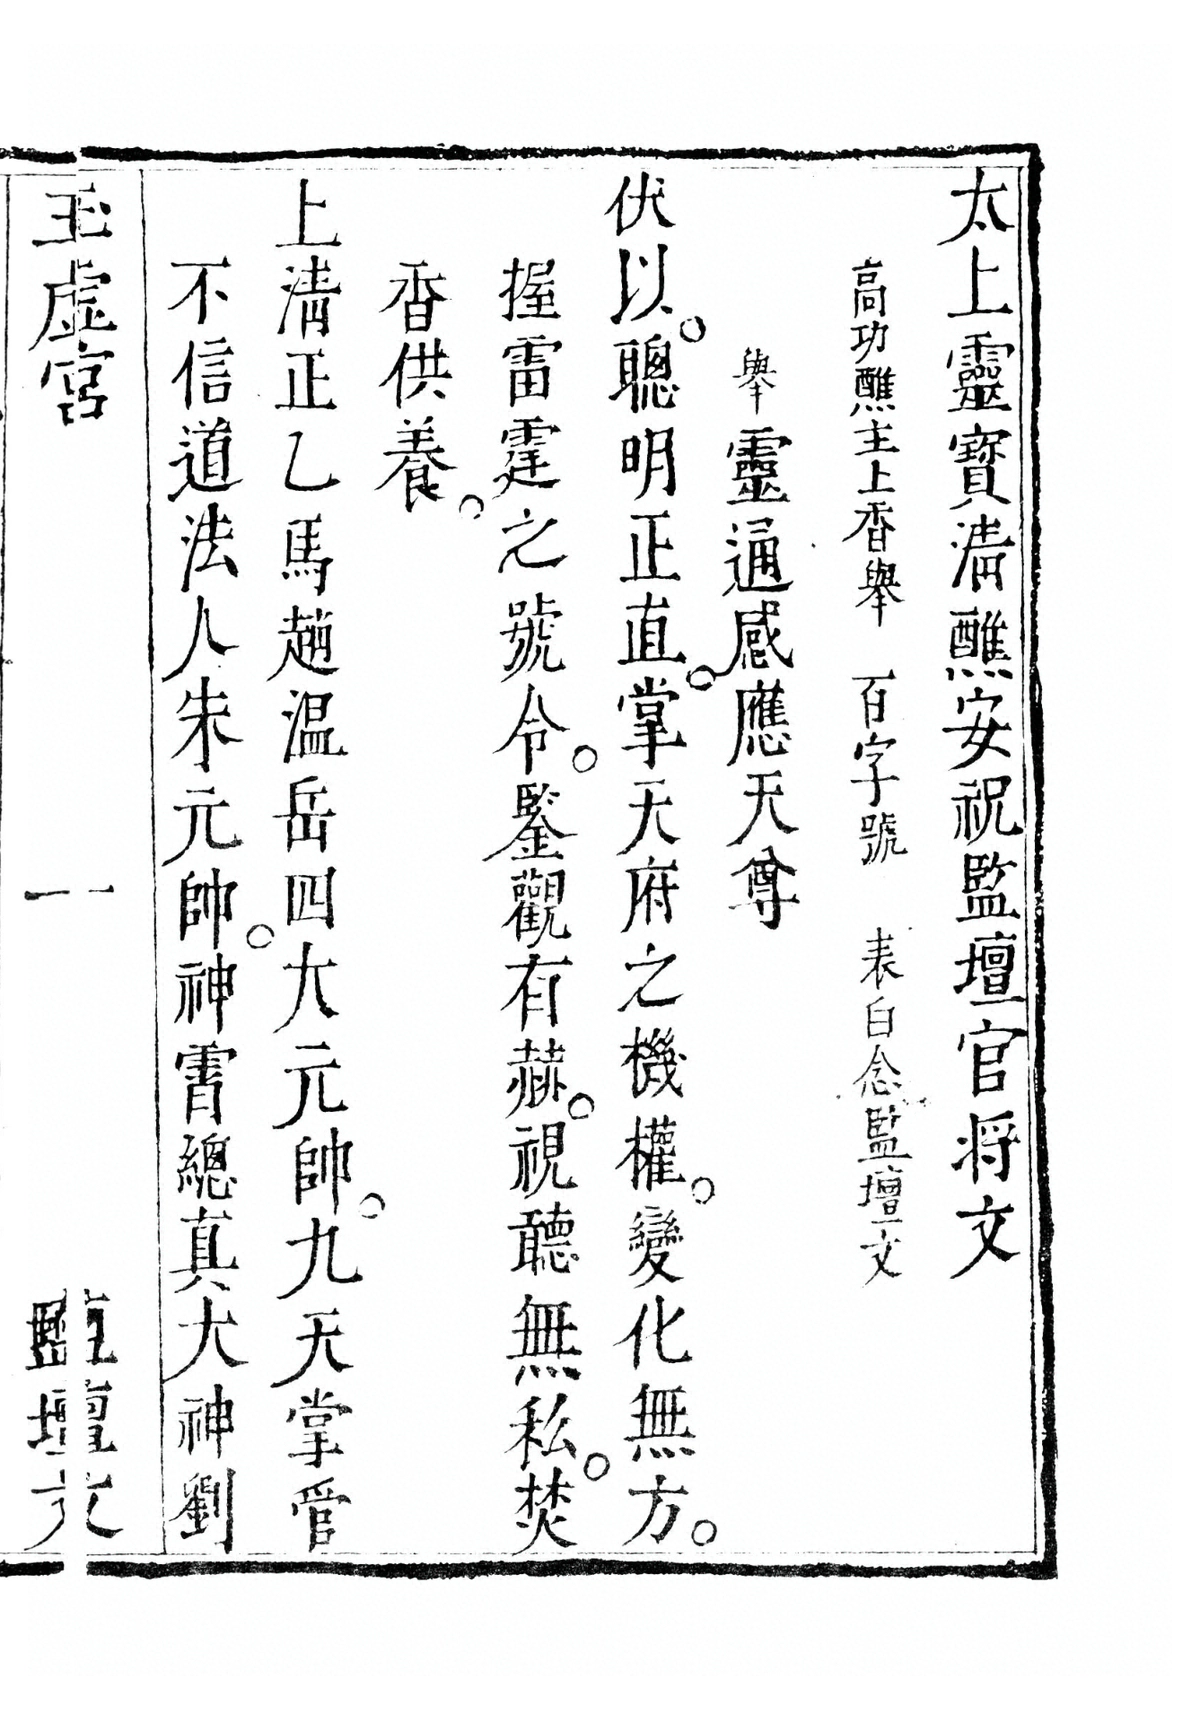 太上靈寶清醮安祝監壇官将文
高功醮主上香舉　百字號　表白念監壇文
舉靈通感應天尊
伏以。聰明正直。掌天府之機權。變化無方。
握雷霆之號令。鑒觀有赫。視聽無私。焚
香供養。
上清正乙馬趙温岳四大元帥。九天掌管
不信道法人朱元帥。神霄總真大神劉
玉虛宮　一　監壇文